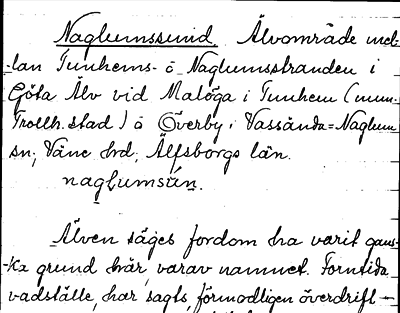 Naglumssund. Älvområde mel-
-lan Tunhems- o Naglumsstranden i
Göta Älv vid Malöga i Tunhem (num.
Trollh. stad) o Överby i Vassända=Naglum
sn, Väne hrd, Älfsborgs län.
naglumsun.
Älven säges fordom ha varit gans-
-ka grund här, varav namnet. Forntida
vadställe, har sagts, förmodligen överdrift –